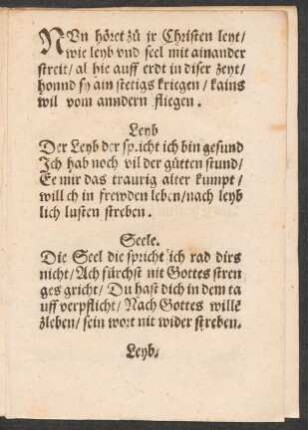 NUn höret zů jr Christen leyt/
wie leyb vnd seel mit ainander
streit/ al hie auff erdt in diser zeyt/
honnd sy ain stetigs kriegen/ kains
wil vom anndern fliegen.
Leyb
Der Leyb der spricht ich bin gesund
Ich hab noch vil der gůtten stund/
Ee mir das traurig alter kumpt/
will ich in frewden leben/ nach leyb
lich lusten streben.
Seele.
Die Seel die spricht ich rad dirs
nicht/ Ach fürchst nit Gottes stren
ges gricht/ Du hast dich in dem ta
uff verpflicht/ Nach Gottes willē
zleben/ sein wort nit wider streben.
Leyb/